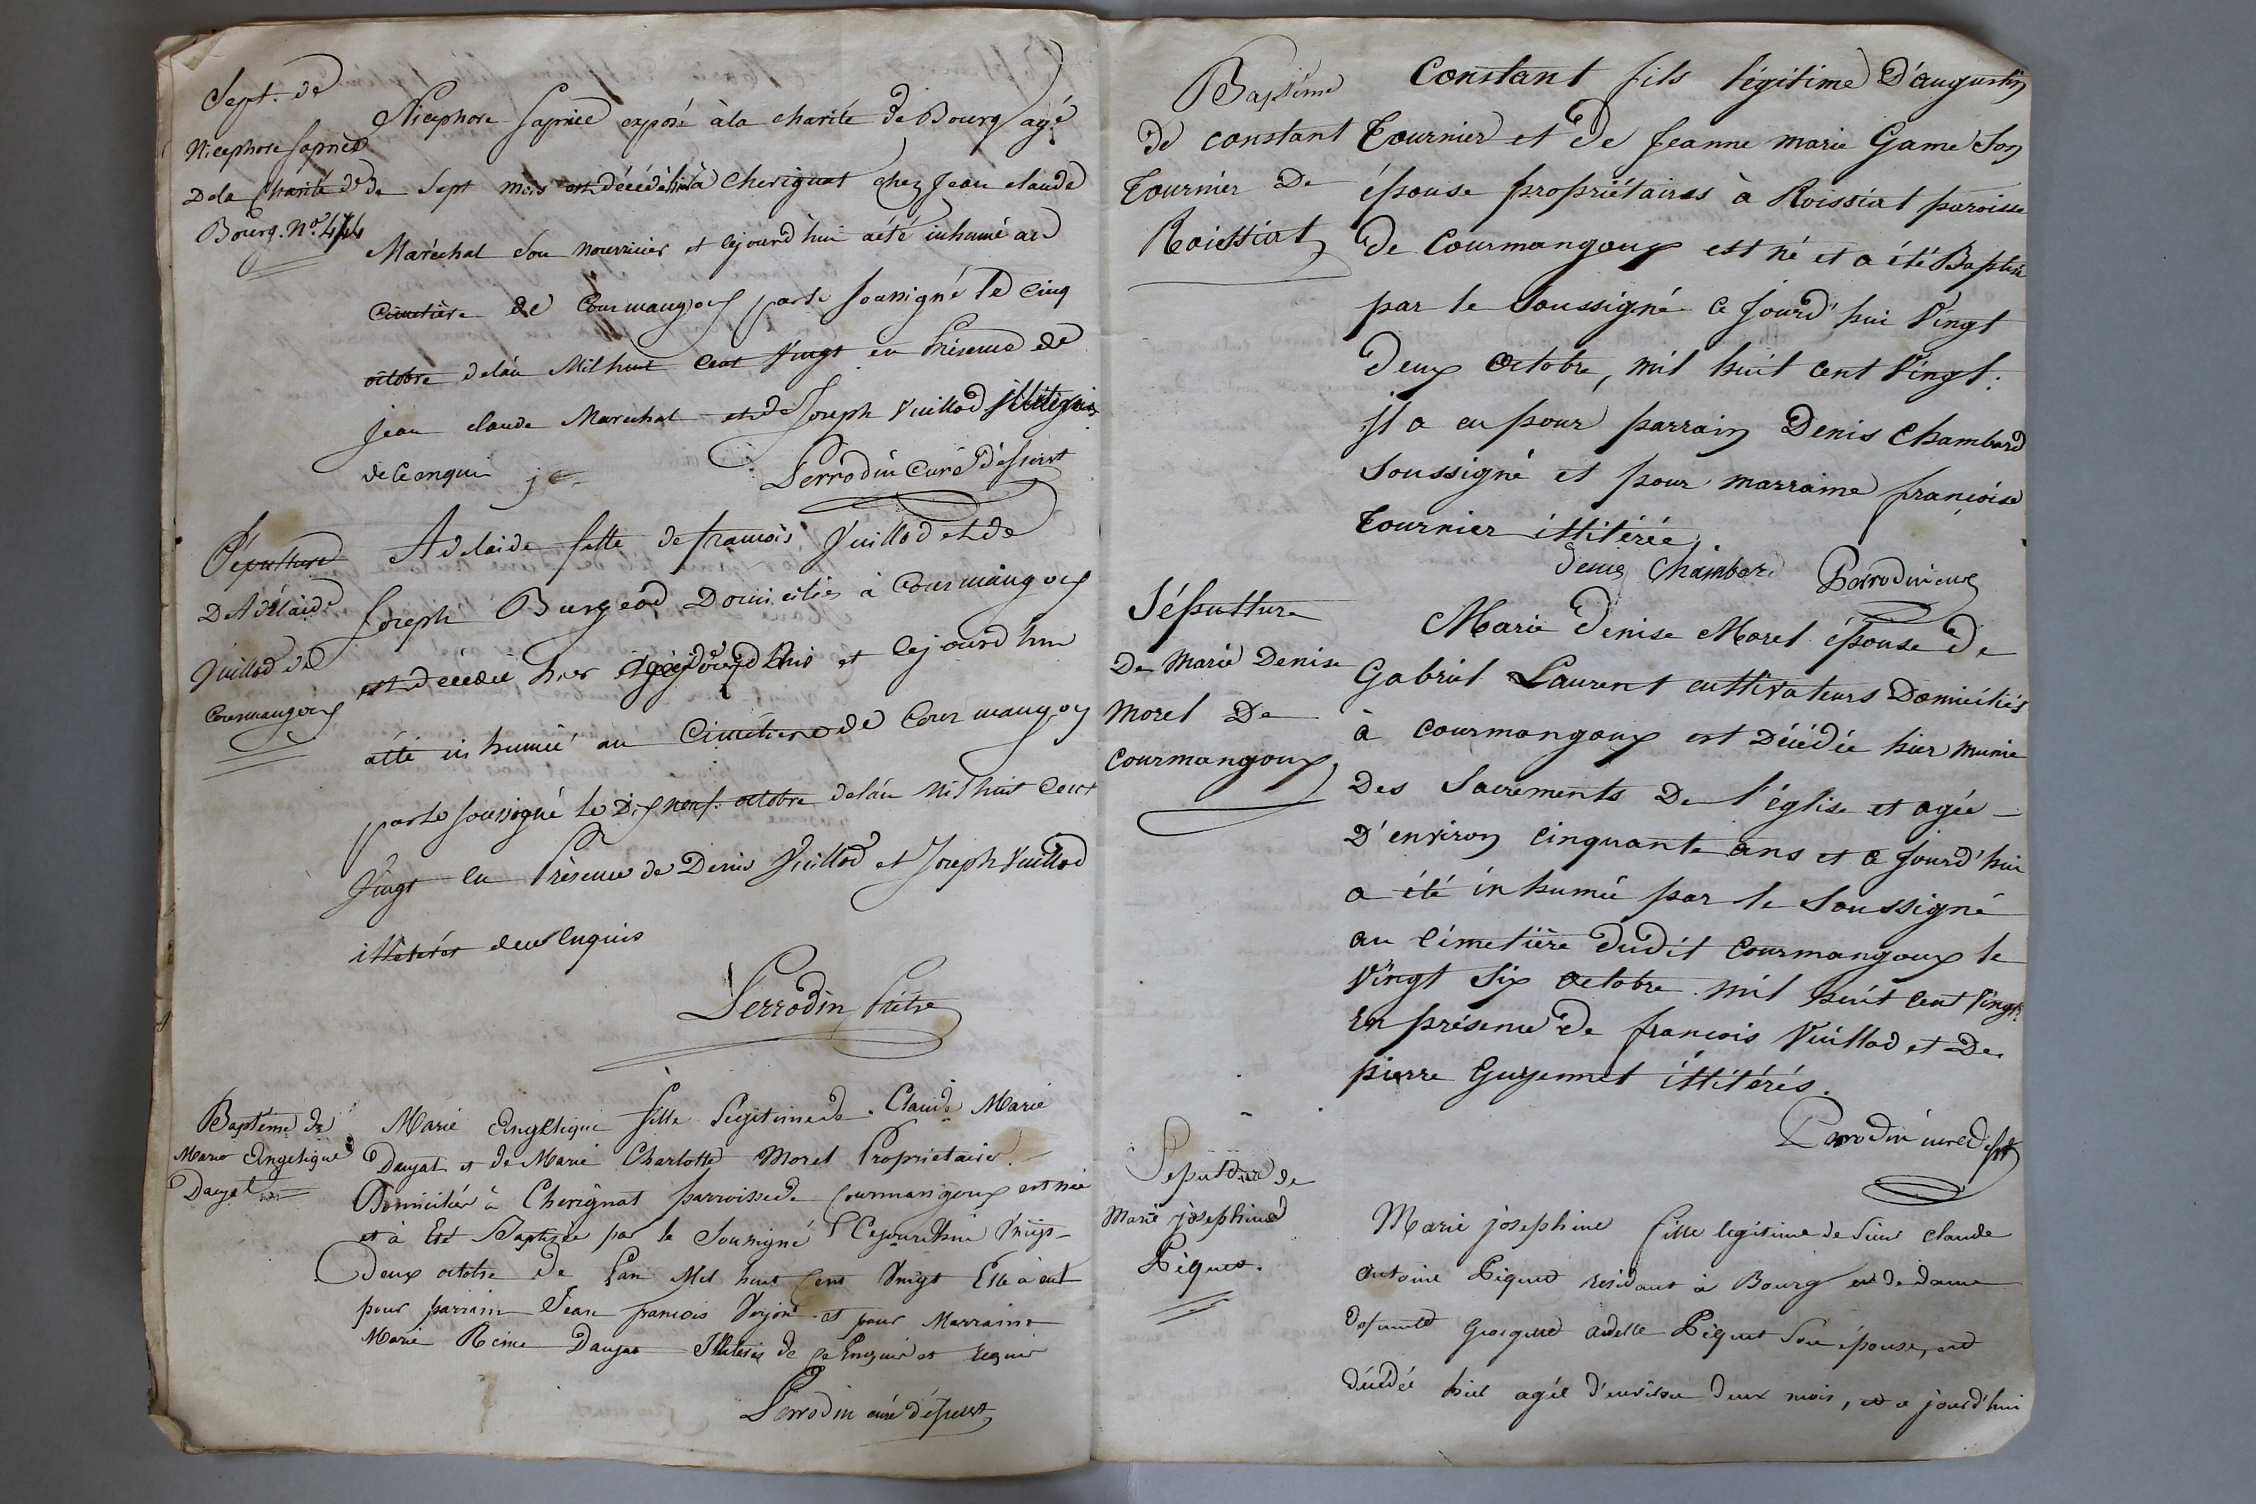 Sept. de
Nicephore Sapriel
De la Charité de
Bourg. N.º 444
Nicephore Sapriel exposé à la charité de Bourg agé
de sept mois est décédé hier à Cherignat chez Jean claude
Maréchal son nourricier et cejourd'hui a été inhumé au
cimetière de Courmangoux par le soussigné le cinq
octobre de l'an Mil huit cent vingt en Présence de
Jean claude Marechal et de Joseph Vuillod illitérés
de ce enquis
Perrodin Curé desservt
Sépulture
D'Adélaïde
Vuillod de
Courmangoux
Adelaïde fille de françois Vuillod et de
Joseph Burgeod Domiciliés à Courmangoux
est décédée hier et cejourd'hui
a été inhumée au Cimetiere de Courmangoux
par le soussigné le Dix neuf octobre de l'an mil huit Cent
Vingt en Présence de Denis Vuillod et Joseph Vuillod
illitérés de ce Enquis
Perrodin Prêtre
Baptême de
Marie Angelique
Daujat
Marie Angélique fille Légitime de Claude Marie
Daujat et de Marie Charlotte Morel Proprietaires
Domiciliés à Cherignat parroisse de Courmangoux est née
et à Eté Baptisée par le Soussigné Cejourd'hui Vingt-
Deux octobre de L'an Mil huit Cent Vingt Elle à eut
pour parrain Jean françois Verjon et pour Marraine
Marie Reine Daujat Illiterés de ce Enquis et requis
Perrodin curé desservt
Baptême
de constant
Tournier De
Roissiat
Constant fils légitime D'augustin
Tournier et De Jeanne marie Game Son
épouse propriétaires à Roissiat paroisse
De Courmangoux est né et a été Baptisé
par le Soussigné ce jourd'hui Vingt
Deux Octobre, mil huit cent Vingt:
il a eu pour parrain Denis Chambard
Soussigné et pour marraine françoise
Tournier illitérée.
Denis Chambard Perrodin curé
Sépulture
De Marie Denise
Morel De
Courmangoux
Marie Denise Morel épouse De
Gabriel Laurent cultivateurs Domiciliés
à Courmangoux est Décédée hier munie
Des Sacrements De l'église et agée
D'environ Cinquante ans et ce jourd'hui
a été inhumée par le Soussigné
au Cimetière dudit Courmangoux le
Vingt Six Octobre mil huit cent Vingt
En présence De francois Vuillod et De
pierre Guyennet illitérés.
Perrodin curé desst
Sepulture de
Marie josephine
Piquet.
Marie josephine fille legitime de Sieur Claude
Antoine Piquet residant à Bourg et de dame
defunte adelle Piquet Son épouse, est
décédée hier agée d'environ deux mois, et ce jourd'hui